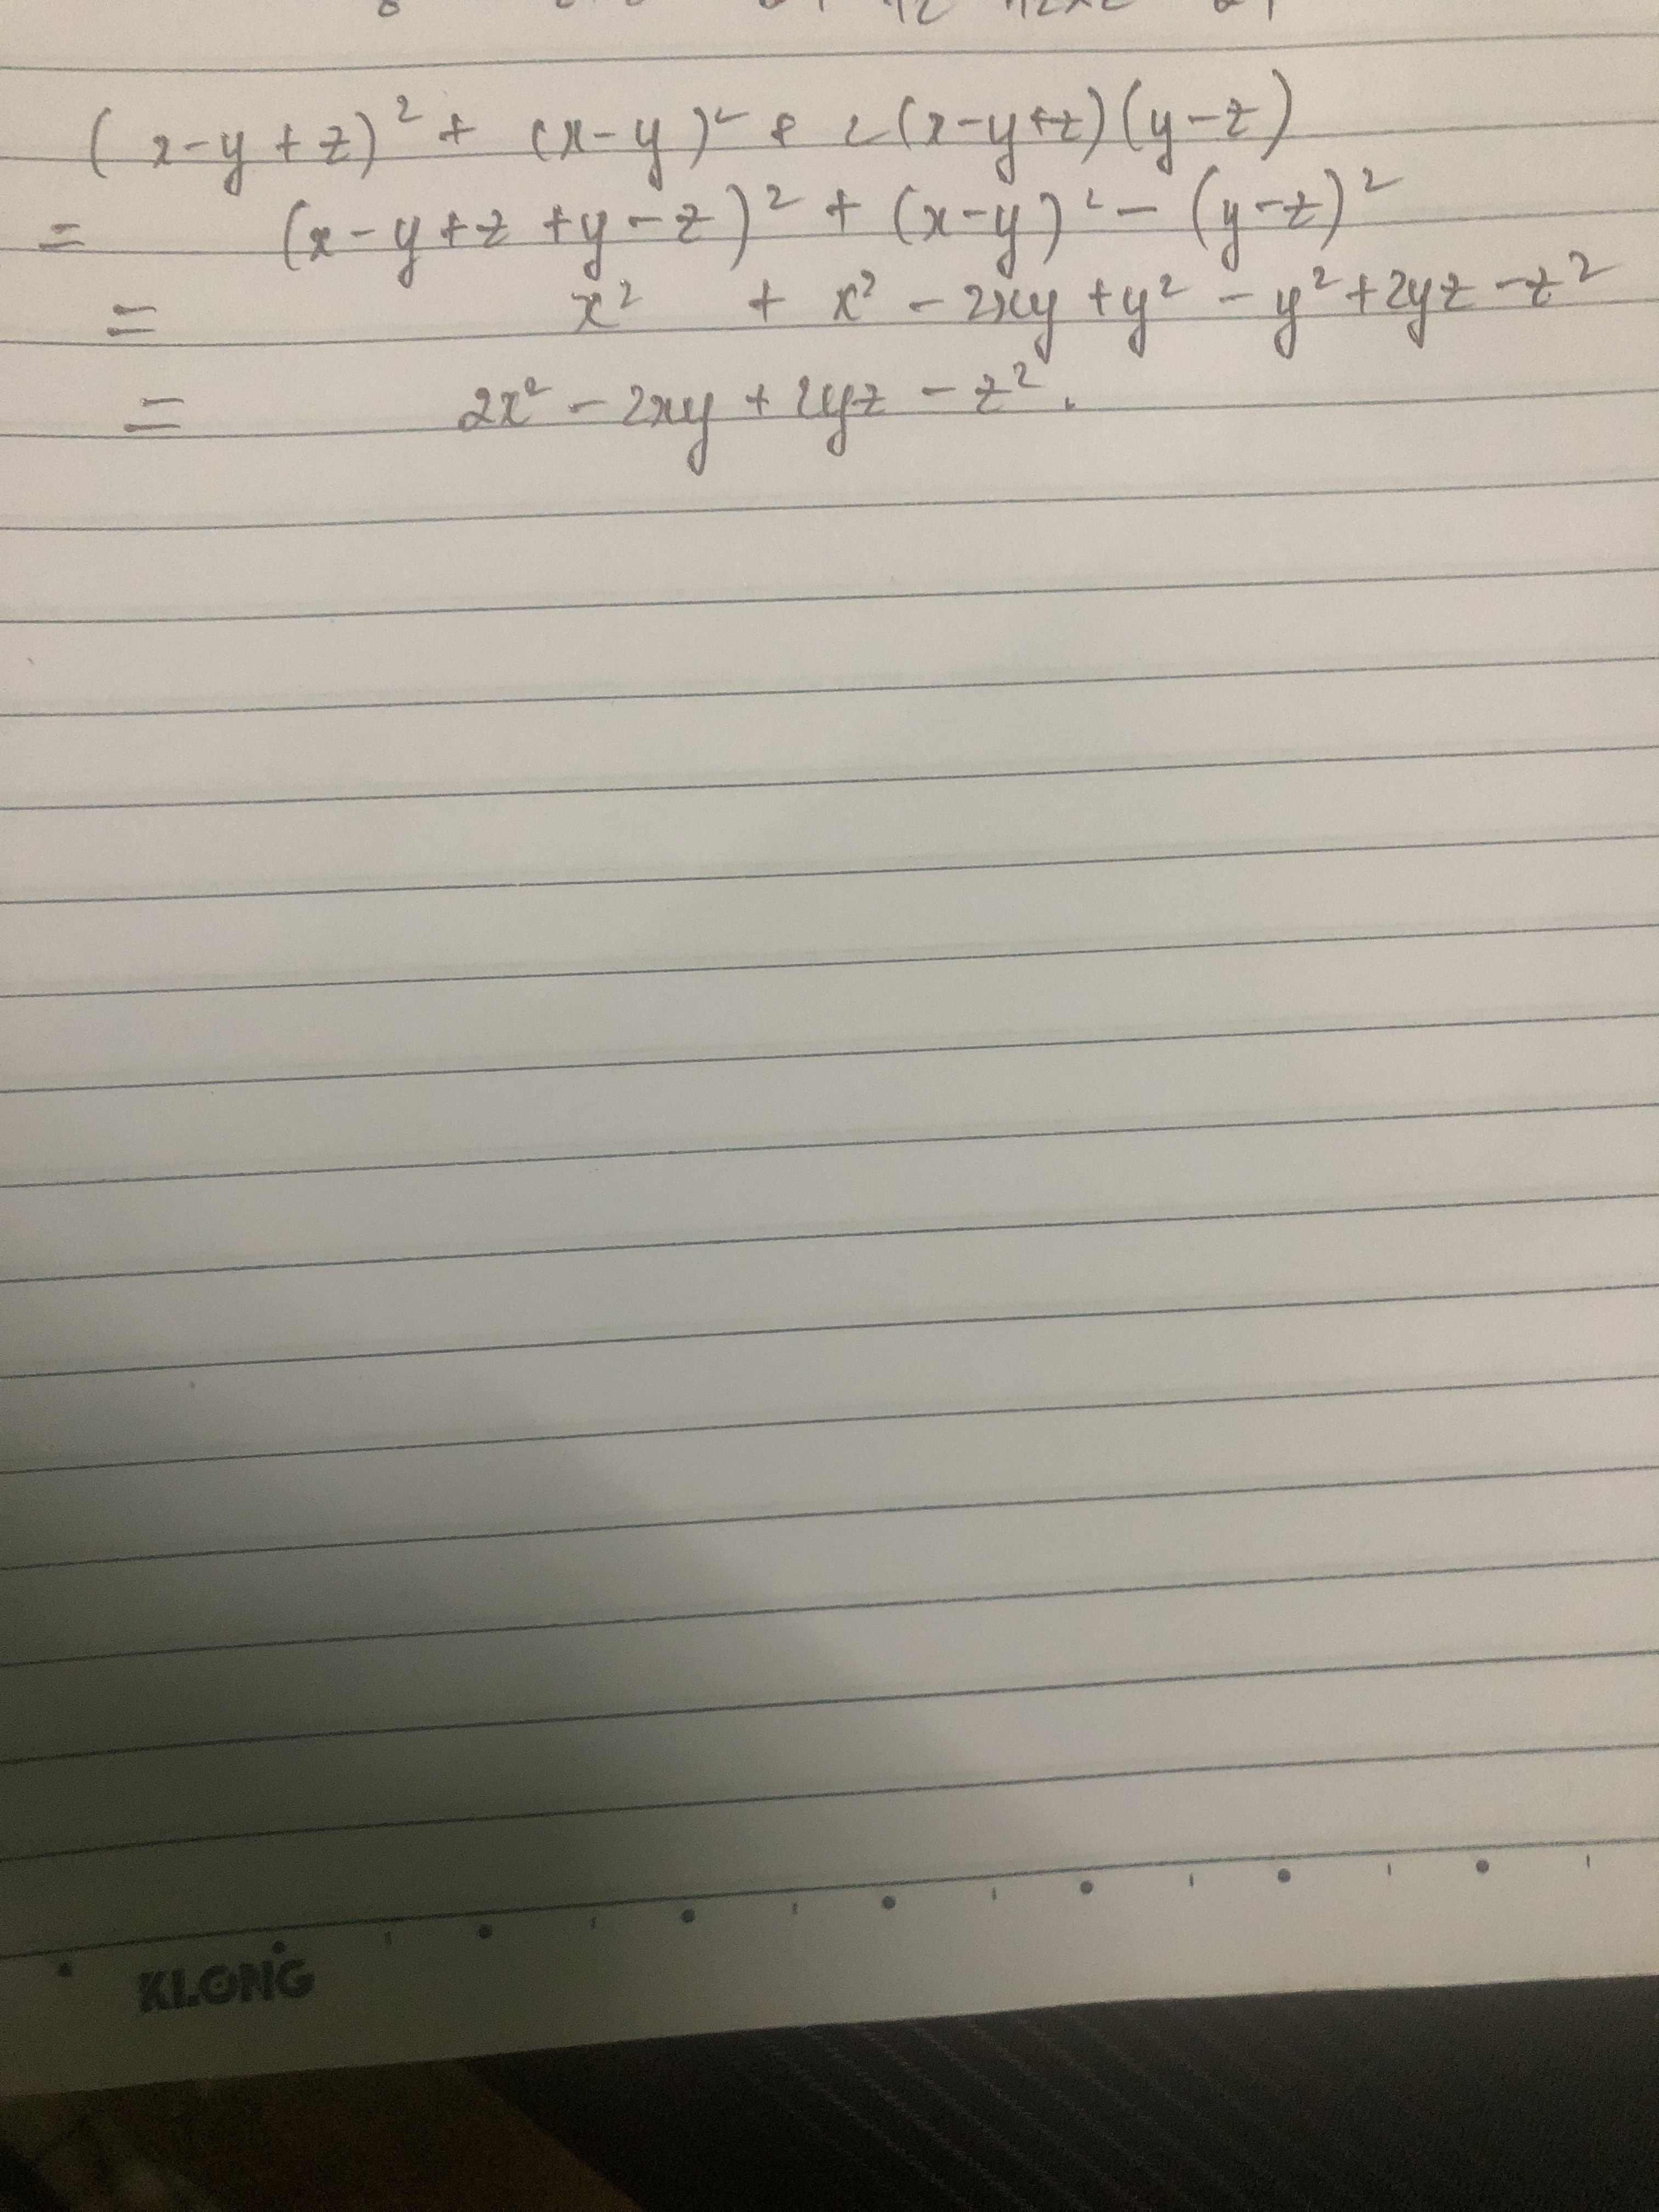 (x-y+z)² + (x-y)² + 2(x-y+z)(y-z)
= (x-y+z+y-z)² + (x-y)² - (y-z)²
= x² + x² - 2xy + y² - y² + 2yz - z²
= 2x² - 2xy + 2yz - z².
KLONG